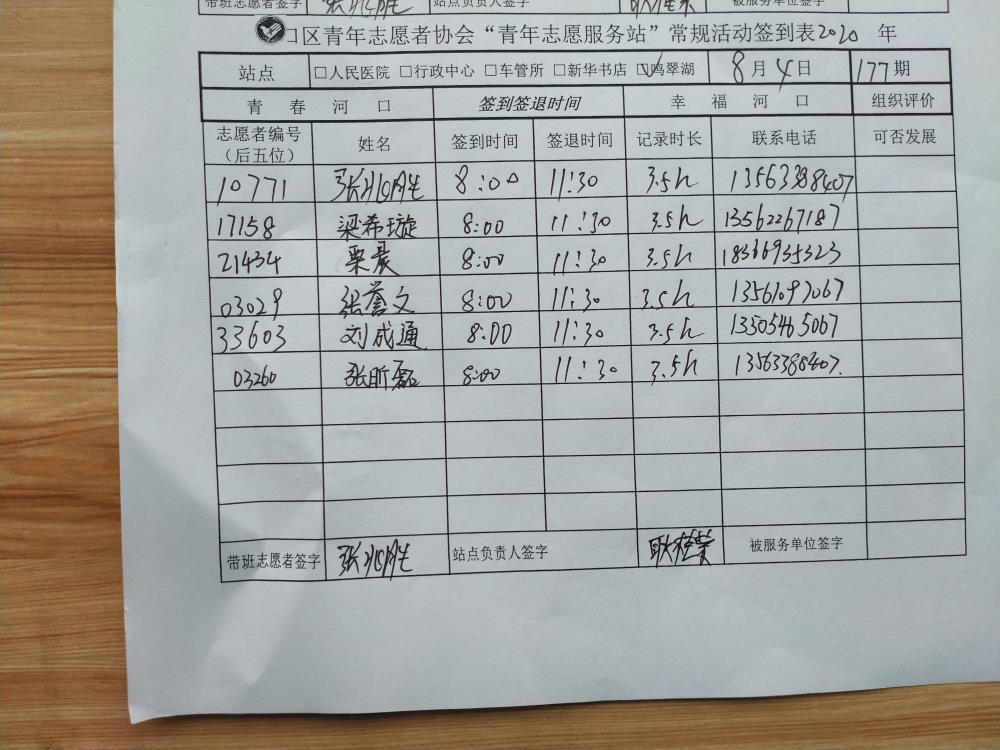 带班志愿者签字 张兆胜 站点负责人签字 被服务单位签字
口区青年志愿者协会“青年志愿服务站”常规活动签到表2020 年
站点 □人民医院 □行政中心 □车管所 □新华书店 ☑鸣翠湖 8月4日 177期
青春河口 签到签退时间 幸福河口 组织评价
志愿者编号(后五位) 姓名 签到时间 签退时间 记录时长 联系电话 可否发展
10771 张兆胜 8:00 11:30 3.5h 13563388407
17158 梁希璇 8:00 11:30 3.5h 13562267187
21434 栗晨 8:00 11:30 3.5h 18366935323
03029 张誉文 8:00 11:30 3.5h 13561097067
33603 刘成通 8:00 11:30 3.5h 13505465067
03260 张昕磊 8:00 11:30 3.5h 13563388407.
带班志愿者签字 张兆胜 站点负责人签字 被服务单位签字